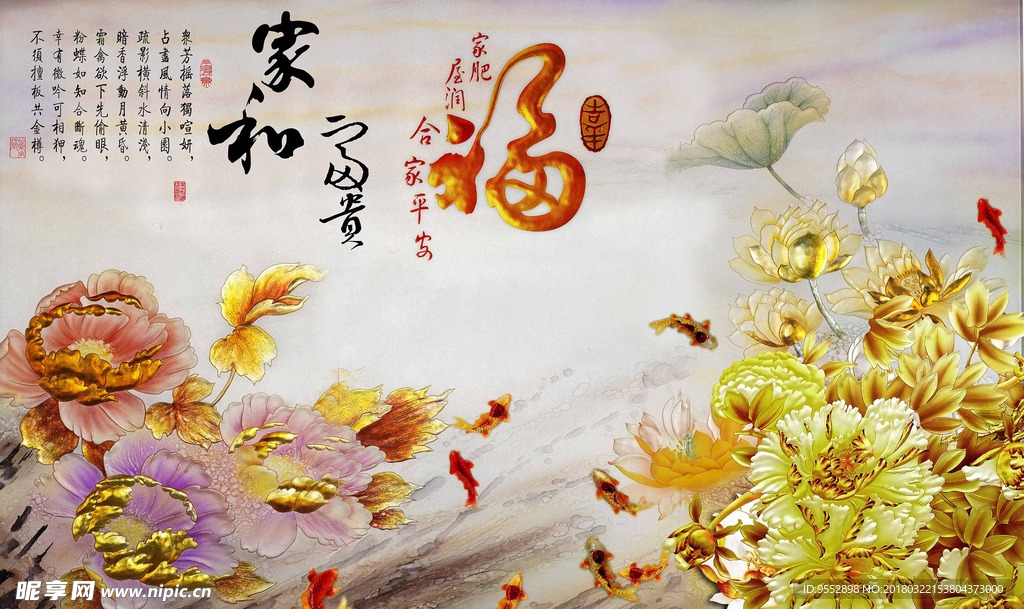 衆芳摇落獨喧妍，
占盡風情向小園。
疏影横斜水清淺，
暗香浮動月黄昏。
霜禽欲下先偷眼，
粉蝶如知合斷魂。
幸有微吟可相狎，
不須檀板共金樽。
家和
富貴
家肥
屋润
合家平安
福
吉平
昵享网 www.nipic.cn
ID:9552898 NO:20180322153804373000